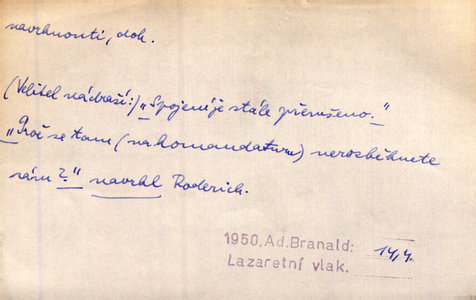 navrhnouti, dok.
(Velitel nádraží:) „Spojení je stále přerušeno."
„Proč se tam (na komandaturu) nerozběhnete
sám?" navrhl Roderich.
1950, Ad. Branald: 14/4.
Lazaretní vlak.